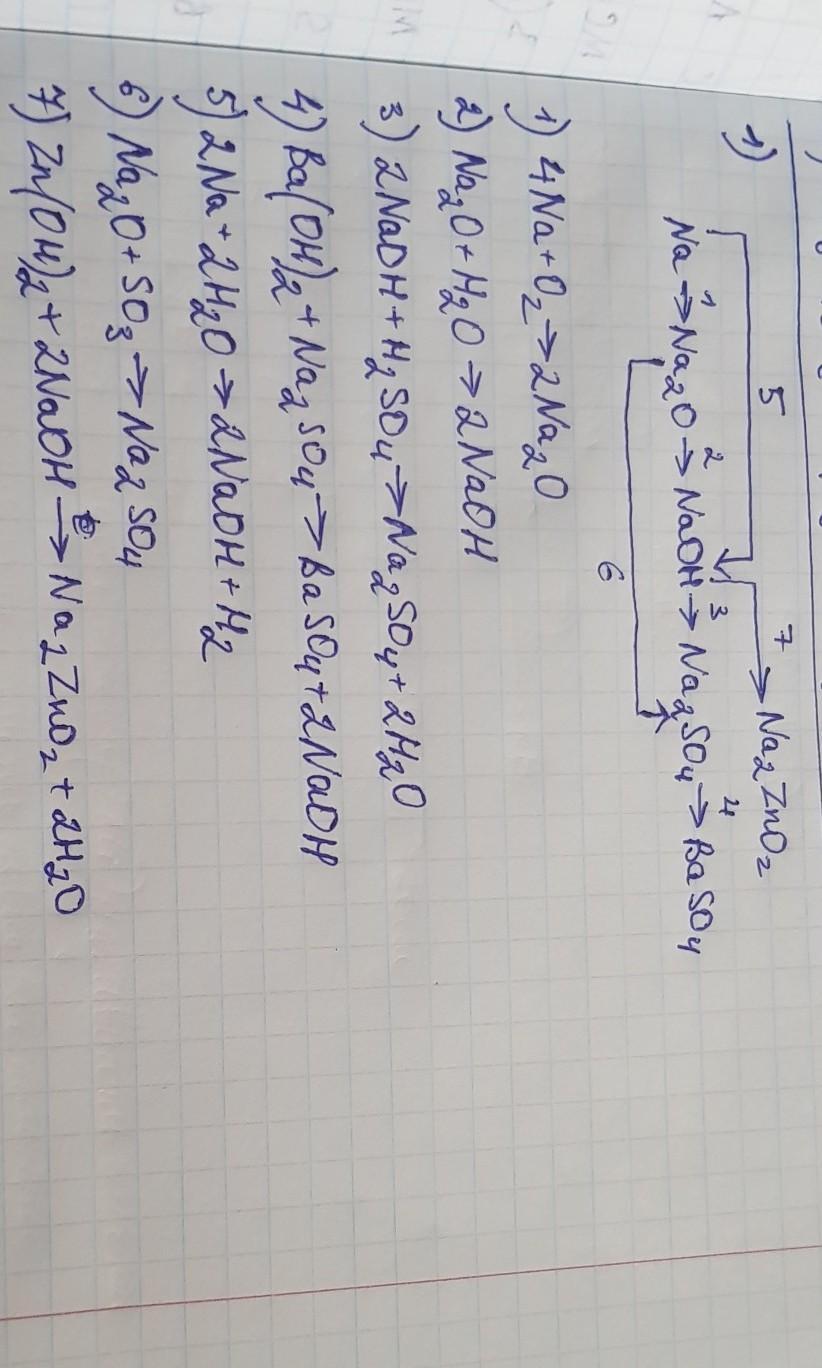 1)
5
7
Na₂ZnO₂
1
2
3
4
Na → Na₂O → NaOH → Na₂SO₄ → BaSO₄
6
1) 4Na + O₂ → 2Na₂O
2) Na₂O + H₂O → 2NaOH
3) 2NaOH + H₂SO₄ → Na₂SO₄ + 2H₂O
4) Ba(OH)₂ + Na₂SO₄ → BaSO₄ + 2NaOH
5) 2Na + 2H₂O → 2NaOH + H₂
6) Na₂O + SO₃ → Na₂SO₄
7) Zn(OH)₂ + 2NaOH → Na₂ZnO₂ + 2H₂O